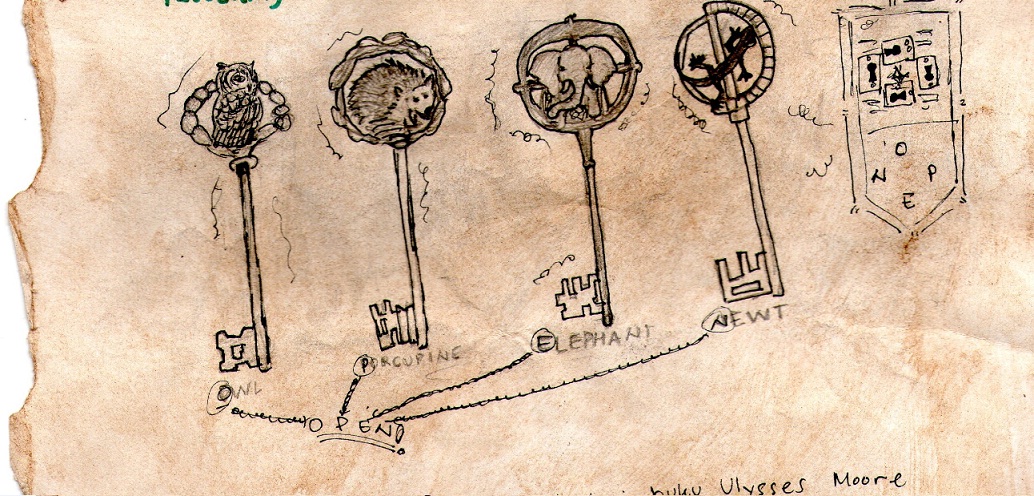 O
N P
E
NEWT
ELEPHANT
PORCUPINE
OWL
OPEN!
buku Ulysses Moore